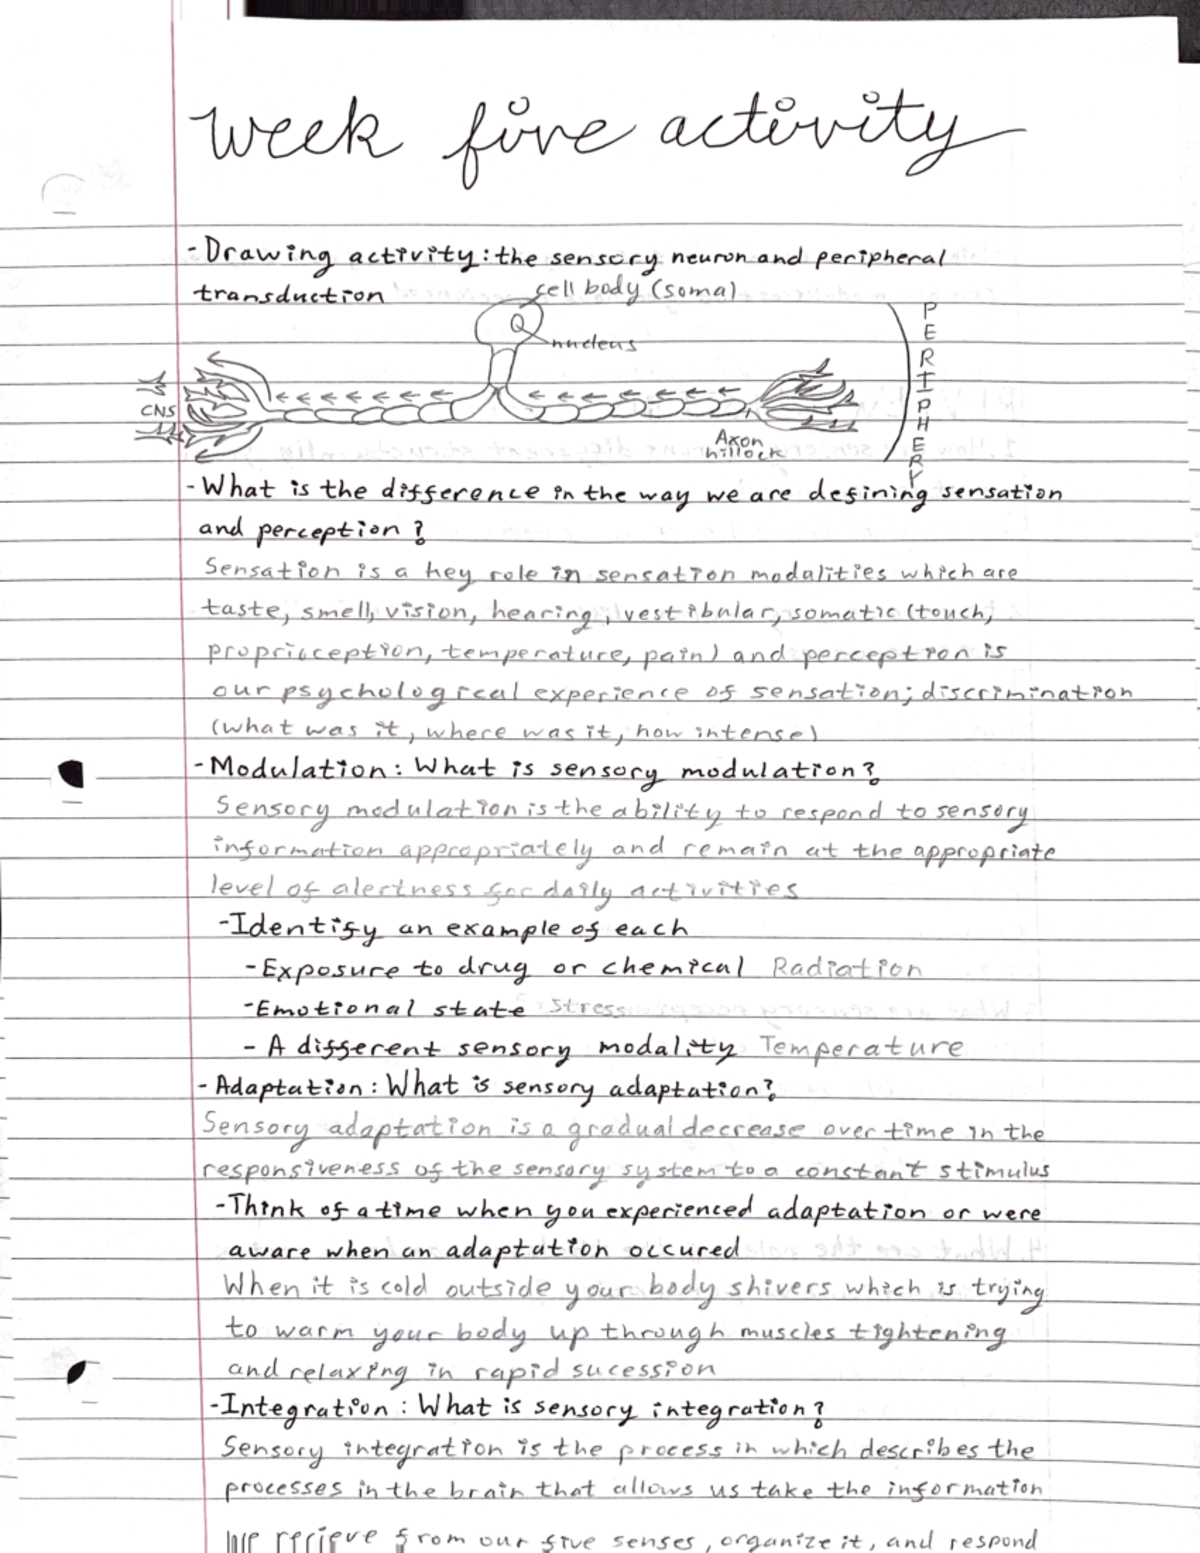 week five activity
-Drawing activity: the sensory neuron and peripheral
transduction
cell body (soma)
nucleus
CNS
Axon
hillock
PERIPHERY
-What is the difference in the way we are defining sensation
and perception?
Sensation is a key role in sensation modalities which are
taste, smell, vision, hearing, vestibular, somatic (touch,
proprioception, temperature, pain) and perception is
our psychological experience of sensation; discrimination
(what was it, where was it, how intense)
-Modulation: What is sensory modulation?
Sensory modulation is the ability to respond to sensory
information appropriately and remain at the appropriate
level of alertness for daily activities
-Identify an example of each
-Exposure to drug or chemical Radiation
-Emotional state Stress
- A different sensory modality Temperature
- Adaptation: What is sensory adaptation?
Sensory adaptation is a gradual decrease over time in the
responsiveness of the sensory system to a constant stimulus
-Think of a time when you experienced adaptation or were
aware when an adaptation occured
When it is cold outside your body shivers which is trying
to warm your body up through muscles tightening
and relaxing in rapid sucession
-Integration: What is sensory integration?
Sensory integration is the process in which describes the
processes in the brain that allows us take the information
we recieve from our five senses, organize it, and respond